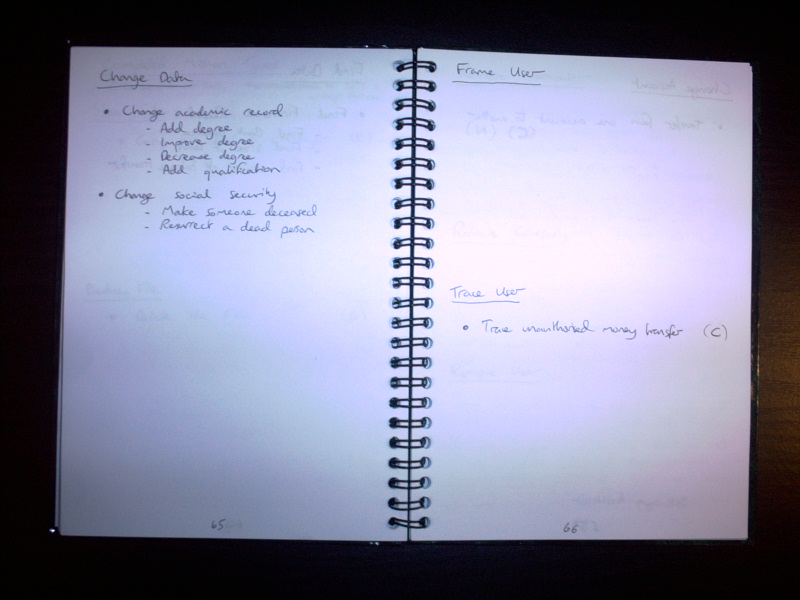 Change Data
• Change academic record
- Add degree
- Improve degree
- Decrease degree
- Add qualification
• Change social security
- Make someone deceased
- Resurrect a dead person
65
Frame User
Trace User
• Trace unauthorised money transfer (C)
66